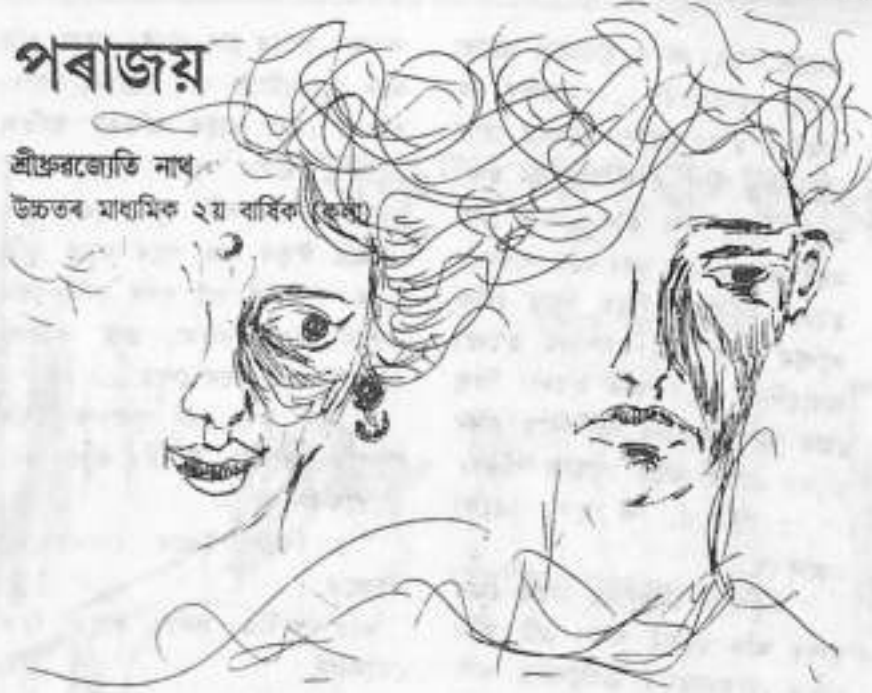 পৰাজয়
শ্ৰীধ্ৰুৱজ্যোতি নাথ
উচ্চতৰ মাধ্যমিক ২য় বাৰ্ষিক (কলা)